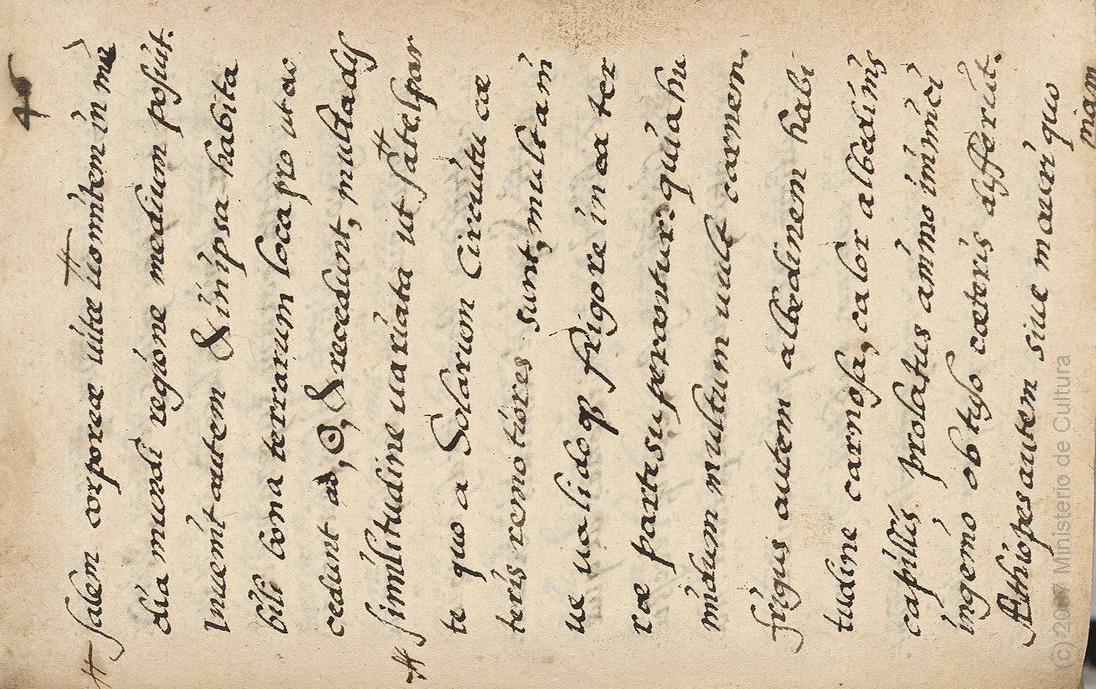 46
salem corporeæ uitæ uomitem in me
dia mundi regione medium posuit.
Inuenit autem & in ipsa habita
bili bona terrarum loca pro ut ac
cedunt ad, ☉, & recedunt, multadis
similitudine uariata ut
te quo a Solarium Circuitu cæ
teris remotiores sunt, multam
ue ualidoq frigore in ea ter
ræ parte superantur. quia hu
midum multum uult carnem.
frigus autem albedinem habi
tudine carnosa, calor albedinis
capillis prolatus animo inimici
ingenio obtuso cæteris differut.
Æthiopes autem siue mauri quo
niam
(c) 2007 Ministerio de Cultura